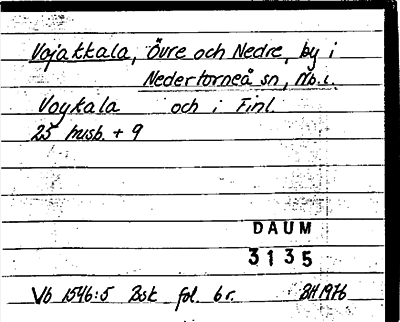 Vojakkala, Övre och Nedre, by i
Nedertorneå sn, Nb.l.
Voykala och i Finl.
25 husb. + 9
DAUM
3135
Vb 1546:5 Bsk fol. 6r. BH 1976